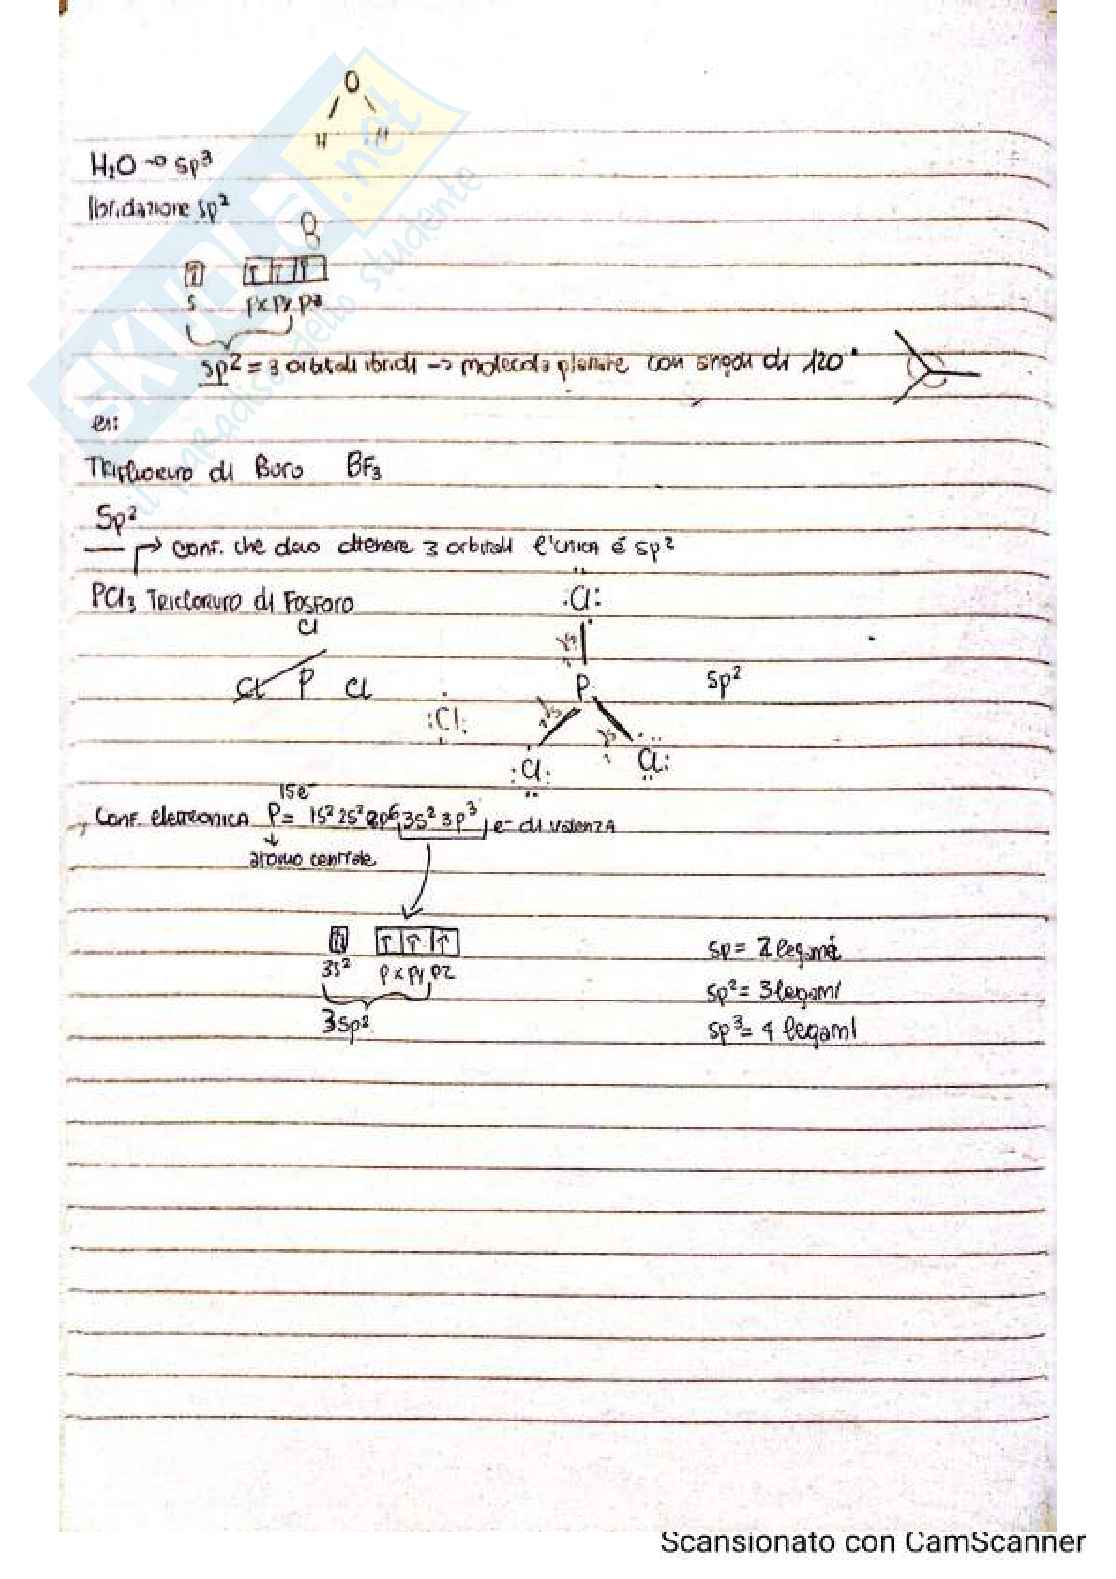 O
H H
H₂O → sp³
Ibridazione sp²
s px py pz
sp² = 3 orbitali ibridi → molecola planare con angoli di 120°
es:
Trifluoruro di Boro BF₃
Sp²
conf. che devo ottenere 3 orbitali l'unica é sp²
PCl₃ Tricloruro di Fosforo
:Cl:
Cl
Cl P Cl
P
sp²
:Cl:
:Cl: Cl:
15e⁻
Conf. elettronica P = 1s² 2s² 2p⁶ 3s² 3p³ e⁻ di valenza
atomo centrale
3s² px py pz
3sp²
sp = 2 legami
sp² = 3 legami
sp³ = 4 legami
SKUOLA.net
il paradiso dello studente
Scansionato con CamScanner